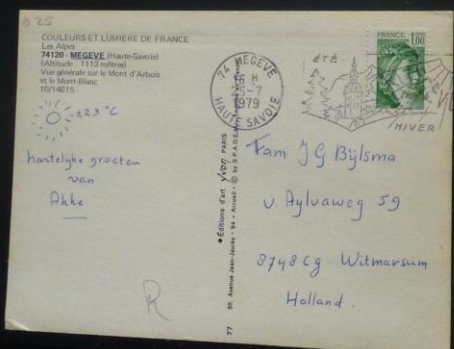 025
COULEURS ET LUMIERE DE FRANCE
Les Alpes
74120 - MEGEVE (Haute-Savoie)
(Altitude : 1113 mètres)
Vue générale sur le Mont d'Arbois
et le Mont-Blanc
10/14615
±23 °C
hartelyke groeten
van
Ahke
R
77 30, Avenue Jean-Jaurès - 94 - Arcueil - © by S.P.A.D.E.M.
Editions d'art yvon PARIS
74 MEGEVE
15 H
5-7
1979
HAUTE SAVOIE
ÉTÉ
HIVER
FRANCE
1,00
Fam J G Bijlsma
v. Aylvaweg 59
8748 CG Witmarsum
Holland.